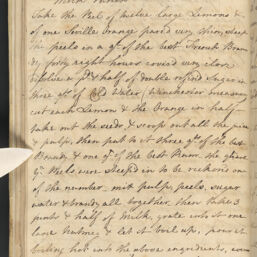 Milk Punch
Take the Peel of twelve large Lemons &
of one Seville Orange pared very thin, steep
the peels in a qt of the best French Bran
dy forty eight hours covered very close
dissolve a pd & half of double refin'd Sugar in
three qts of Cold Water, Winchester measure
cut each Lemon & the Orange in half
take out the seeds, & scoop out all the juice
& pulp, then put to it three qts of the best
Brandy & one qt of the best Rum. the
qt Peels were steep'd in to be reckon'd one
of the number. mix pulp, peels, sugar
water & brandy all together, then take 3
pints & half of Milk, grate into it one
large Nutmeg & let it boil up, pour it
boiling hot into the above ingredients,